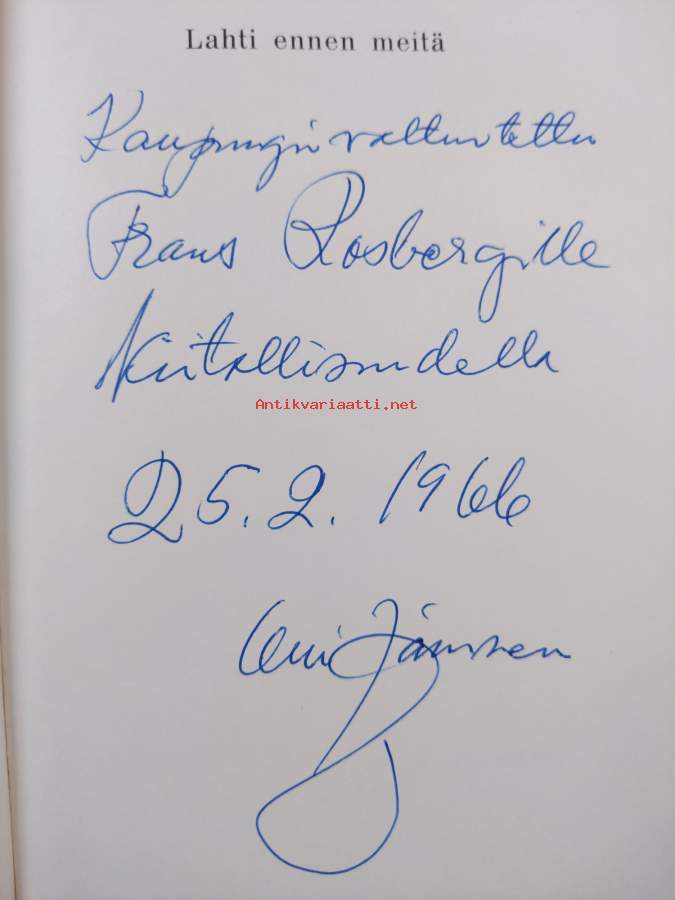 Lahti ennen meitä
Kaupunginvaltuutettu
Frans Rosbergille
kiitollisuudella
Antikvariaatti.net
25.2. 1966